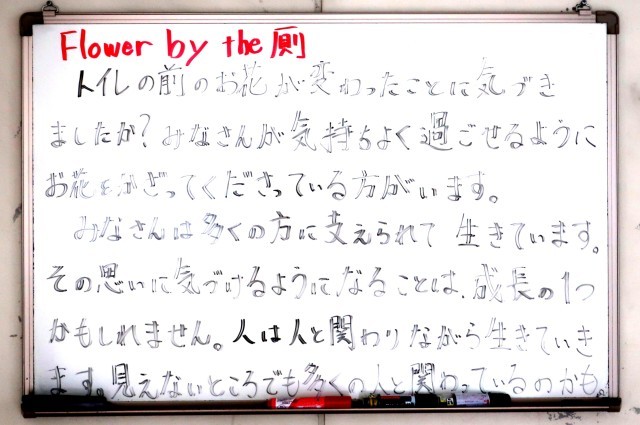 Flower by the 厠
トイレの前のお花が変わったことに気づき
ましたか?みなさんが気持ちよく過ごせるように
お花をかざってくださっている方がいます。
みなさんは多くの方に支えられて生きています。
その思いに気づけるようになることは、成長の1つ
かもしれません。人は人と関わりながら生きていき
ます。見えないところでも多くの人と関わっているのかも。